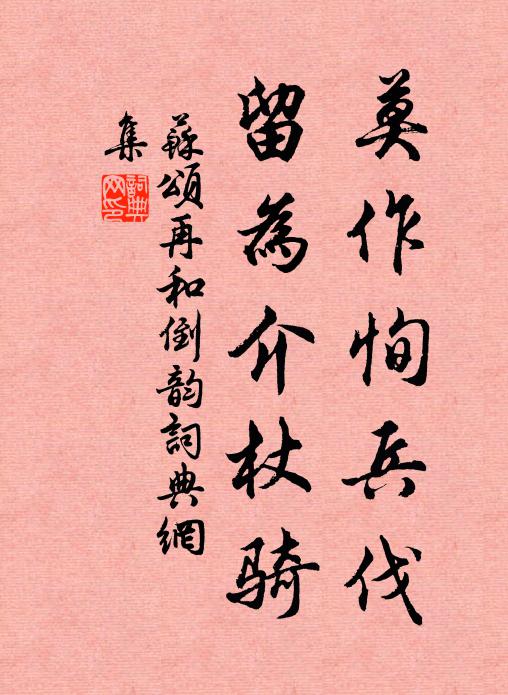 莫作恂兵伐
留為介杖騎
蘇頌再和倒韵詞典網
集
詞典
网印